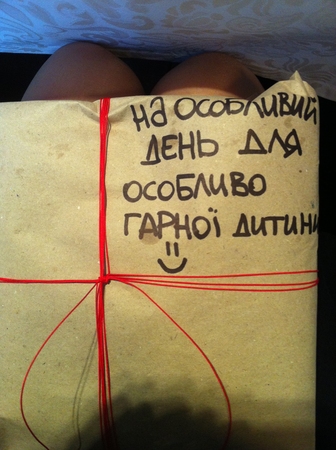 на особливий
день для
особливо
гарної дитини